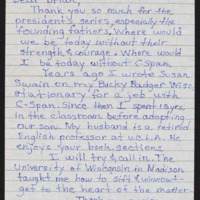 Dear Brian,
Thank you so much for the
president's series, especially the
founding fathers. Where would
we be today without their
strength & courage. Where would
I be today without C-Span.
Years ago I wrote Susan
Swain on my Bucky Badger Wisc
stationary for a job with
C-Span. Since then I spent 15 yrs
in the classroom before adopting
our son. My husband is a retired
English professor at UCLA. He
enjoys your book sections
I will try & call in. The
University of Wisconsin in Madison
taught me how to sift & winnow-
get to the heart of the matter-
Thank you